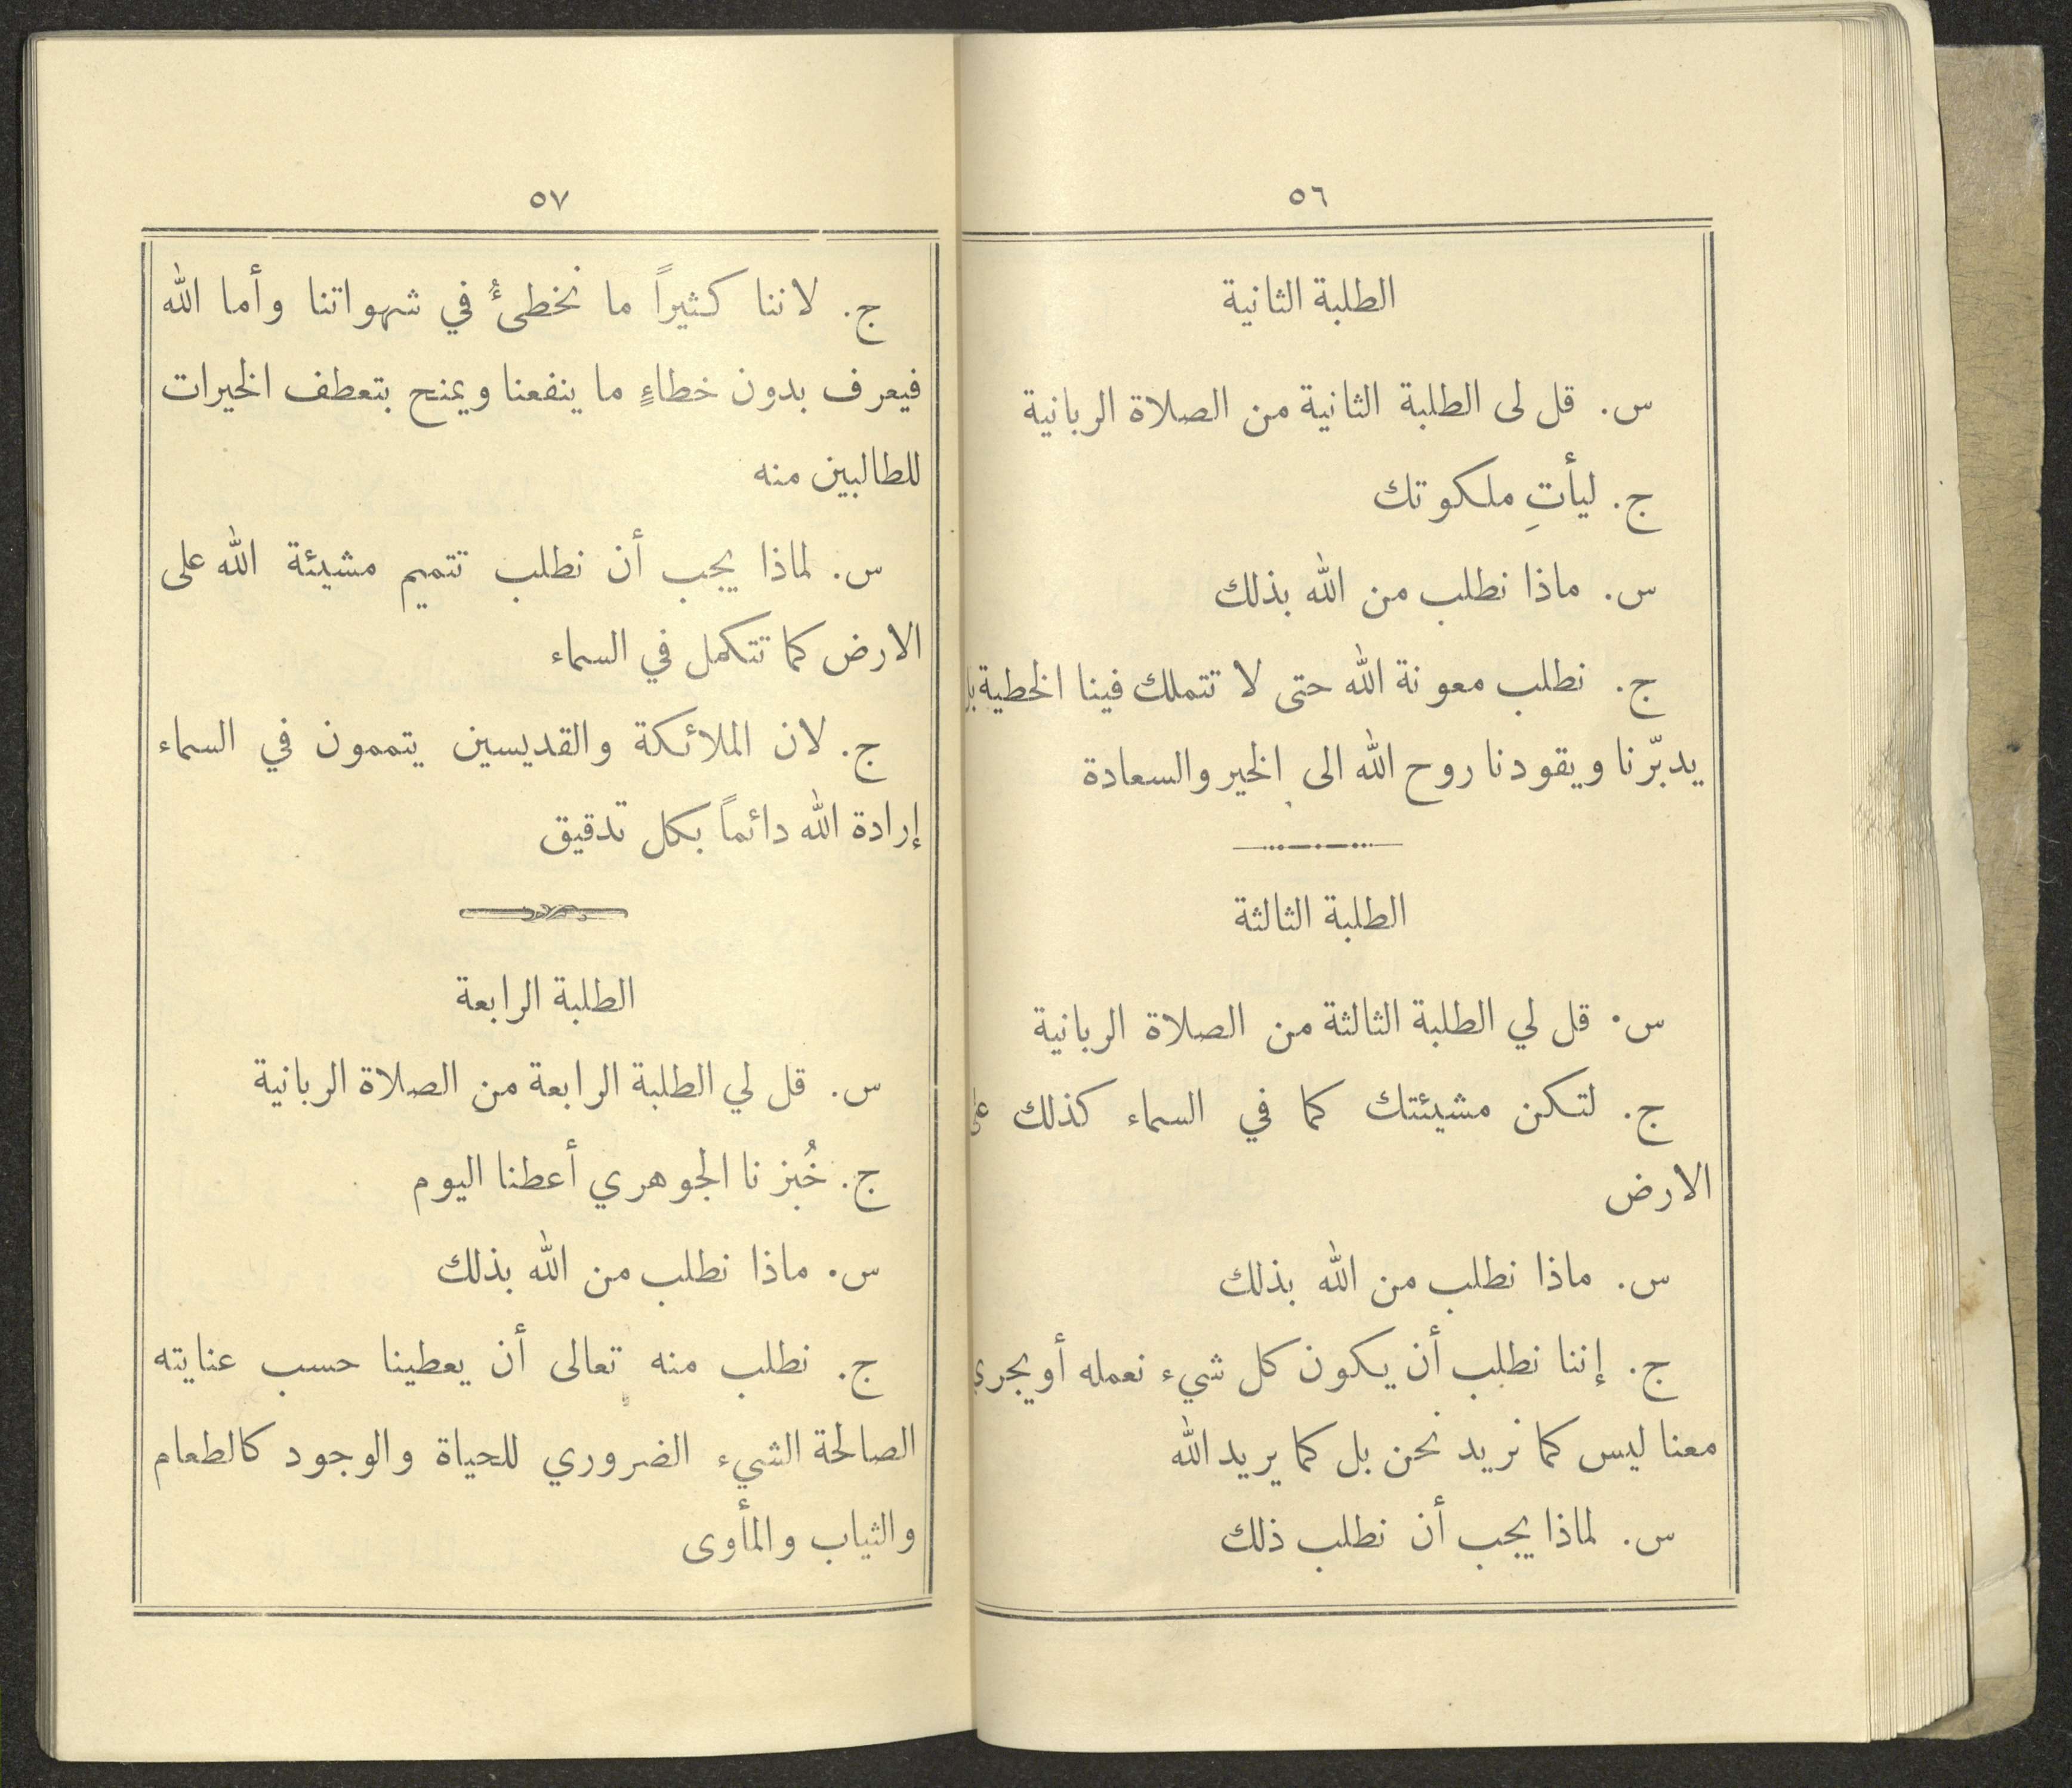 ٥٦
الطلبة الثانية
س. قل لى الطلبة الثانية من الصلاة الربانية
ج. ليأتِ ملكوتك
س. ماذا نطلب من الله بذلك
ج. نطلب معونة الله حتى لا تتملك فينا الخطية بل
يدبّرنا ويقودنا روح الله الى الخير والسعادة
الطلبة الثالثة
س. قل لي الطلبة الثالثة من الصلاة الربانية
ج. لتكن مشيئتك كما في السماء كذلك على
الارض
س. ماذا نطلب من الله بذلك
ج. إننا نطلب أن يكون كل شيء نعمله أو يجري
معنا ليس كما نريد نحن بل كما يريد الله
س. لماذا يجب أن نطلب ذلك
٥٧
ج. لاننا كثيراً ما نخطئُ في شهواتنا وأما الله
فيعرف بدون خطاءٍ ما ينفعنا ويمنح بتعطف الخيرات
للطالبين منه
س. لماذا يجب أن نطلب تتميم مشيئة الله على
الارض كما تتكمل في السماء
ج. لان الملائكة والقديسين يتممون في السماء
إرادة الله دائماً بكل تدقيق
الطلبة الرابعة
س. قل لي الطلبة الرابعة من الصلاة الربانية
ج. خُبزنا الجوهري أعطنا اليوم
س. ماذا نطلب من الله بذلك
ج. نطلب منه تعالى أن يعطينا حسب عنايته
الصالحة الشيء الضروري للحياة والوجود كالطعام
والثياب والمأوى